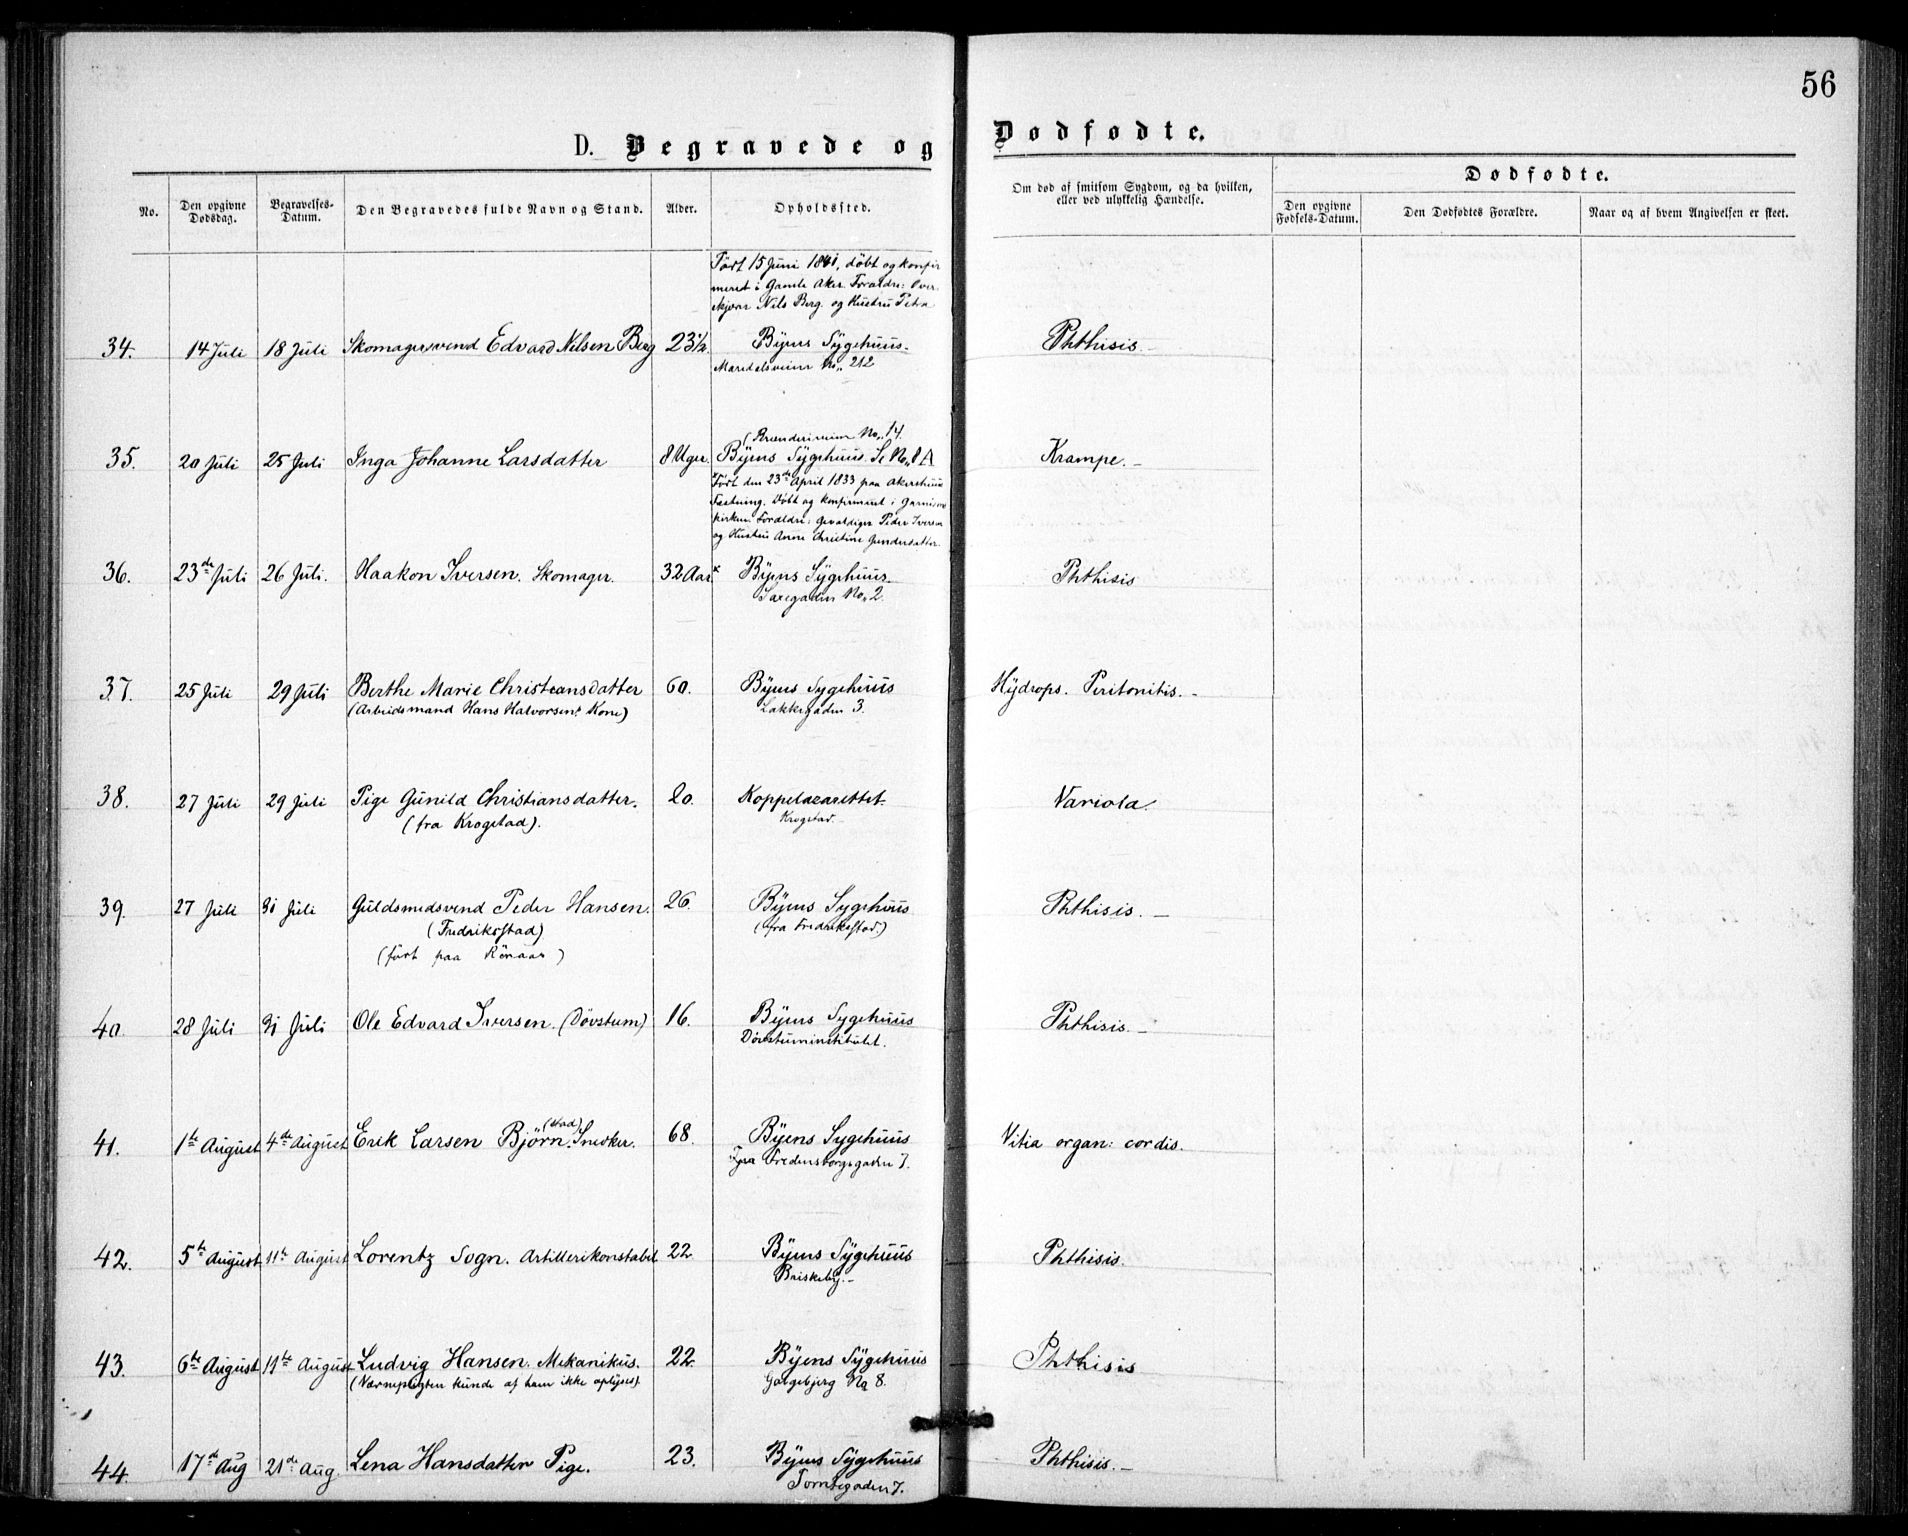 56
D. Begravede og Dødfødte.
No.
Den opgivne Dødsdag.
Begravelses-Datum.
Den Begravedes fulde Navn og Stand.
Alder.
Opholdssted.
Om død af smitsom Sygdom, og da hvilken, eller ved ulykkelig Hændelse.
Dødfødte.
Den opgivne Fødsels-Datum.
Den Dødfødtes Forældre.
Naar og af hvem Angivelsen er skeet.
Født 15 Juni 1841, döbt og konfir
meret i Gamle Aker. Forældre:
Nils Berg og Hustru Petra
34. 14 Juli 18 Juli Skomagersvend Edvard Nilsen Berg 23½. Byens Sygehuus. Phthisis.
Maridalsveien No. 212
No. 14.
35. 20 Juli 25 Juli Inga Johanne Larsdatter 8 Uger. Byens Sygehuus. Se No. 8 A Krampe.
Født den 23de April 1833 paa Akershuus
Fæstning. Döbt og konfirmeret i Garnisons
kirken. Forældre: Gevaldiger Peder Iversen
og Hustru Anne Christine Gundersdatter.
36. 23de Juli 26 Juli. Haakon Iversen. Skomager. 32 Aar x Byens Sygehuus Phthisis
Saxegaden No. 2.
37. 25 Juli 29 Juli Berthe Marie Christiansdatter 60. Byens Sygehuus Hydrops. Peritonitis.
(Arbeidsmand Hans Halvorsens Kone) Lakkegaden 3.
38. 27 Juli 29 Juli Pige Gunild Christiansdatter. 20. Koppelazarettet. Variola.
(fra Krogstad). Krogstad.
39. 27 Juli 31 Juli Guldsmedsvend Peder Hansen. 26. Byens Sygehuus Phthisis.
(Fredriksstad) (fra Fredriksstad.)
(født paa Röraas)
40. 28 Juli 31 Juli Ole Edvard Iversen. (Dövstum) 16. Byens Sygehuus Phthisis.
Dövstuminstitutet.
(stad)
41. 1te August 4de August Erik Larsen Bjørn. Snedker. 68. Byens Sygehuus Vitia organ: cordis.
Fredensborgsgaden 7.
42. 5te August 11te August Lorentz Sogn. Artillerikonstabel 22 Byens Sygehuus Phthisis.
Briskeby.
43. 6te August 11te August Ludvig Hansen. Mekanikus. 22. Byens Sygehuus Phthisis
(Værnepligten kunde af ham ikke oplyses). Galgebjerg No 8.
44. 17de Aug 21de Aug. Lena Hansdatter Pige. 23. Byens Sygehuus Phthisis.
Tomtegaden 7.